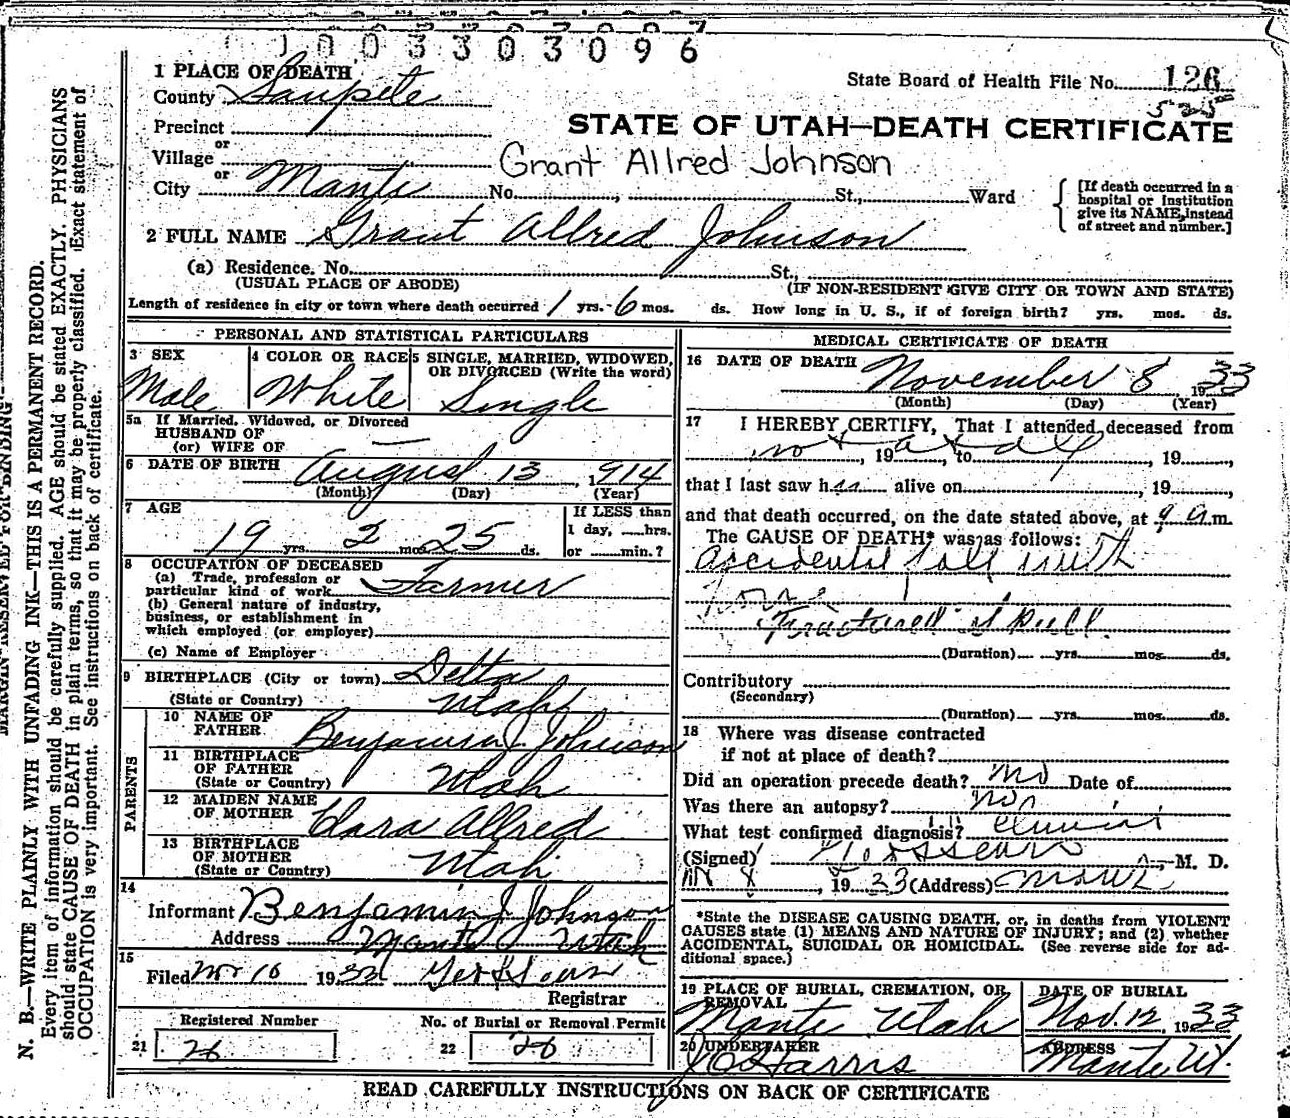 1003303096
1 PLACE OF DEATH
State Board of Health File No. 126
County Sanpete
525
Precinct
STATE OF UTAH—DEATH CERTIFICATE
or
Village
Grant Allred Johnson
or
City Manti No. , St., Ward
[If death occurred in a hospital or institution give its NAME, instead of street and number.]
2 FULL NAME Grant Allred Johnson
(a) Residence. No. St.,
(USUAL PLACE OF ABODE) (IF NON-RESIDENT GIVE CITY OR TOWN AND STATE)
Length of residence in city or town where death occurred 1 yrs. 6 mos. ds. How long in U. S., if of foreign birth? yrs. mos. ds.
PERSONAL AND STATISTICAL PARTICULARS
3 SEX
Male
4 COLOR OR RACE
White
5 SINGLE, MARRIED, WIDOWED,
OR DIVORCED (Write the word)
Single
5a If Married, Widowed, or Divorced
HUSBAND OF
(or) WIFE OF —
6 DATE OF BIRTH August 13, 1914
(Month) (Day) (Year)
7 AGE
19 yrs. 2 mos. 25 ds.
If LESS than
1 day, hrs.
or min.?
8 OCCUPATION OF DECEASED
(a) Trade, profession or
particular kind of work Farmer
(b) General nature of industry,
business, or establishment in
which employed (or employer)
(c) Name of Employer
9 BIRTHPLACE (City or town) Delta
(State or Country) Utah
PARENTS
10 NAME OF
FATHER Benjamin J. Johnson
11 BIRTHPLACE
OF FATHER
(State or Country) Utah
12 MAIDEN NAME
OF MOTHER Clara Allred
13 BIRTHPLACE
OF MOTHER
(State or Country) Utah
14
Informant Benjamin J Johnson
Address Manti Utah
15
Filed Nov 10 1933
Registrar
Registered Number
21 26
No. of Burial or Removal Permit
22 26
MEDICAL CERTIFICATE OF DEATH
16 DATE OF DEATH November 8 1933
(Month) (Day) (Year)
17 I HEREBY CERTIFY, That I attended deceased from
not at all, 19 , to , 19 ,
that I last saw h alive on , 19 ,
and that death occurred, on the date stated above, at 9 a.m.
The CAUSE OF DEATH* was as follows:
accidental fall with
horse
Fractured skull.
(Duration) yrs. mos. ds.
Contributory
(Secondary)
(Duration) yrs. mos. ds.
18 Where was disease contracted
if not at place of death?
Did an operation precede death? no Date of
Was there an autopsy? no
What test confirmed diagnosis?
(Signed) M. D.
, 1933 (Address)
*State the DISEASE CAUSING DEATH, or, in deaths from VIOLENT
CAUSES state (1) MEANS AND NATURE OF INJURY; and (2) whether
ACCIDENTAL, SUICIDAL OR HOMICIDAL. (See reverse side for ad-
ditional space.)
19 PLACE OF BURIAL, CREMATION, OR
REMOVAL
Manti Utah
DATE OF BURIAL
Nov. 12, 1933
20 UNDERTAKER
Harris
ADDRESS
Manti, Ut.
READ CAREFULLY INSTRUCTIONS ON BACK OF CERTIFICATE
MARGIN RESERVED FOR BINDING
N. B.—WRITE PLAINLY WITH UNFADING INK—THIS IS A PERMANENT RECORD.
Every item of information should be carefully supplied. AGE should be stated EXACTLY. PHYSICIANS
should state CAUSE OF DEATH in plain terms, so that it may be properly classified. Exact statement of
OCCUPATION is very important. See instructions on back of certificate.